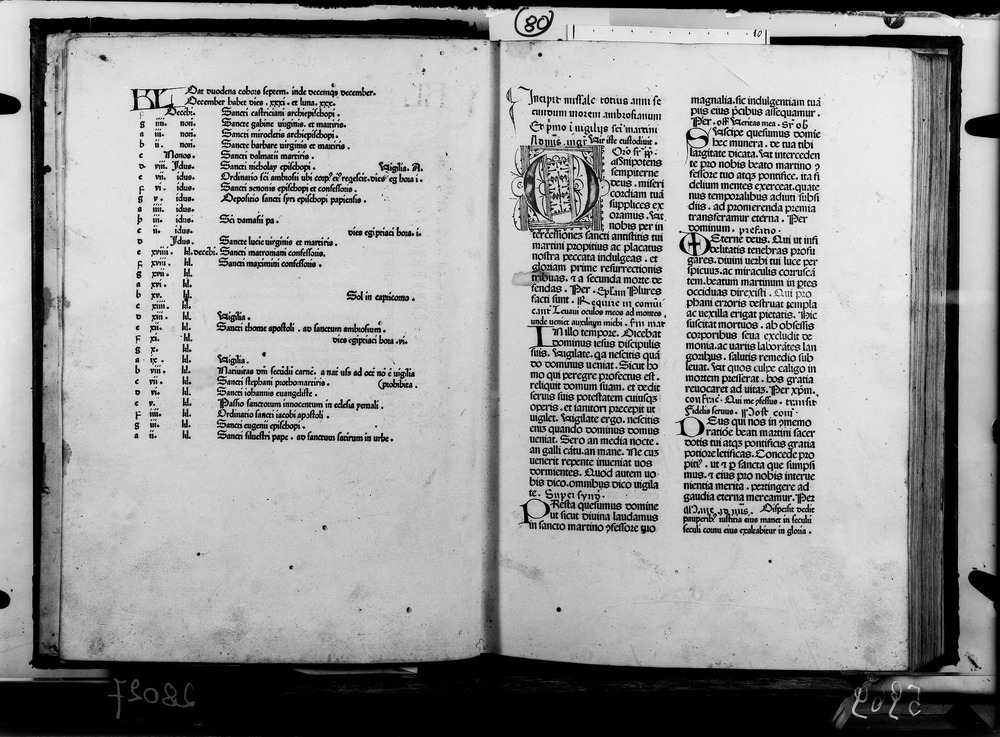 80
10
KL Dat duodena cohors septem. inde decemqȝ december.
December habet dies. xxxi. et luna. xxx.
f Decēbi. Sancti castriciani archiepiſchopi.
g iiii. non. Sancte gabine uirginis. et martiris.
a iii. non. Sancti mirocletis archiepiſchopi.
b ii. non. Sancte barbare uirginis et martiris.
c Nonos. Sancti dalmatii martiris.
d viii. Idus. Sancti nicholay epiſchopi. Vigilia. A.
e vii. idus. Ordinatio sci ambrosii ubi corpꝰ eiꝰ reqeſcit. dies eg hora i.
f vi. idus. Sancti zenonis epiſchopi et confeſſoris.
g v. idus. Depoſitio sancti syri epiſchopi papienſis.
a iiii. idus.
b iii. idus. Sci damaſii pa.
c ii. idus. dies egiptiaci hora. i.
d Idus. Sancte lucie uirginis et martiris.
e xviiii. kl. decēbi. Sancti matroniani confeſſoris.
f xviii. kl. Sancti maximini confeſſoris.
g xvii. kl.
a xvi. kl.
b xv. kl. Sol in capricorno.
c xiiii. kl.
d xiii. kl. Vigilia.
e xii. kl. Sancti thome apoſtoli. ad sanctum ambroſium.
f xi. kl. dies egiptiaci hora. vi.
g x. kl.
a ix. kl. Vigilia.
b viii. kl. Natiuitas dñi secūdū carnē. a nat uſqȝ ad oct nō ē uigilia
c vii. kl. Sancti ſtephani prothomartiris. (prohibita.
d vi. kl. Sancti iohannis euangeliſte.
e v. kl. Paſſio sanctorum innocentum in ecleſia yemali.
f iiii. kl. Ordinatio sancti iacobi apoſtoli.
g iii. kl. Sancti eugenii epiſchopi.
a ii. kl. Sancti ſilueſtri pape. ad sanctum ſatirum in urbe.
Incipit miſſale totius anni se
cundum morem ambroſianum
Et pimo ī uigilijs sci martini
Vir iste cuſtodiuit.
Oro sr pp.
OMnipotens
sempiterne
deus. miſeri
cordiam tuā
supplices ex
oramus. Vat
nobis per in
terceſſionēs sancti antiſtitis tui
martini propitius ac placatus
noſtra peccata indulgeas. et
gloriam prime reſurrectionis
tribuas. ⁊ a secunda morte de
fendas. Per. Eplam Plures
facti sunt. Require in comūi
cant Leuaui oculos meos ad montes.
unde ueniet auxilium michi. sm mar
IN illo tempore. Dicebat
dominus ieſus diſcipulis
suis. Vigilate. qa neſcitis quā
do dominus ueniat. Sicut ho
mo qui peregre profectus eſt.
reliquit domum suam. et dedit
seruis suis poteſtatem cuiuſqȝ
operis. et ianitori precepit ut
uigilet. Vigilate ergo. neſcitis
enȝ quando dominus domus
ueniat. Sero an media nocte.
an galli cātu. an mane. Ne cuȝ
uenerit repente inueniat uos
dormientes. Quod autem uo
bis dico. omnibus dico uigila
te. Super synꝺ.
PReſta queſumus domine
ut sicut diuina laudamus
in sancto martino ɔfeſſore tuo
magnalia. sic indulgentiam tuā
piis eius p̄cibus aſſequamur.
Per. off Veritas mea. Sr ob
SVſcipe queſumus domie
hec munera. de tua tibi
largitate dicata. Vat interceden
te pro nobis beato martino ɔ
feſſore tuo atqȝ pontifice. ita fi
delium mentes exerceat. quate
nus temporalibus adiuti subſi
diis. ad promerenda premia
transferamur eterna. Per
dominum. prefatio.
Eterne deus. Qui ut infi
delitatis tenebras profu
gares. diuini uerbi tui luce per
spicuuȝ. ac miraculis coruſcā
tem. beatum martinum in ptes
occiduas direxiſti. Qui pro
phani erroris deſtruat templa
ac uexilla erigat pietatis. Hic
suſcitat mortuos. ab obſeſſis
corporibus seua excludit de
monia. ac uariis laborātes lan
goribuȝ. salutis remedio sub
leuat. Vat quos culpe caligo in
mortem preſſerat. hos gratia
reuocaret ad uitaȝ. Per xp̄m.
con frac. Qui me ɔfeſſus. transit
Fidelis seruus. Poſt comī
DEus qui nos in ɔmemo
ratiōe beati martini sacer
dotis tui atqȝ pontificis gratia
potiore letificas. Concede pro
pitiꝰ. ut ⁊ p sancta que sumpſi
mus. ⁊ eius pro nobis interue
nientia merita. pertingere ad
gaudia eterna mereamur. Per
Diſperſit dedit
pauperibȝ iuſtitia eius manet in seculū
seculi cornu eius exaltabitur in gloria.
28027